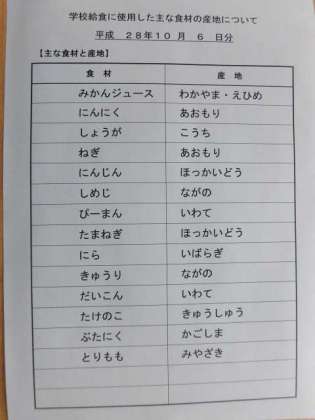 学校給食に使用した主な食材の産地について
平成　２８年１０　月　６　日分
【主な食材と産地】
食　材　産　地
みかんジュース　わかやま・えひめ
にんにく　あおもり
しょうが　こうち
ねぎ　あおもり
にんじん　ほっかいどう
しめじ　ながの
ぴーまん　いわて
たまねぎ　ほっかいどう
にら　いばらぎ
きゅうり　ながの
だいこん　いわて
たけのこ　きゅうしゅう
ぶたにく　かごしま
とりもも　みやざき